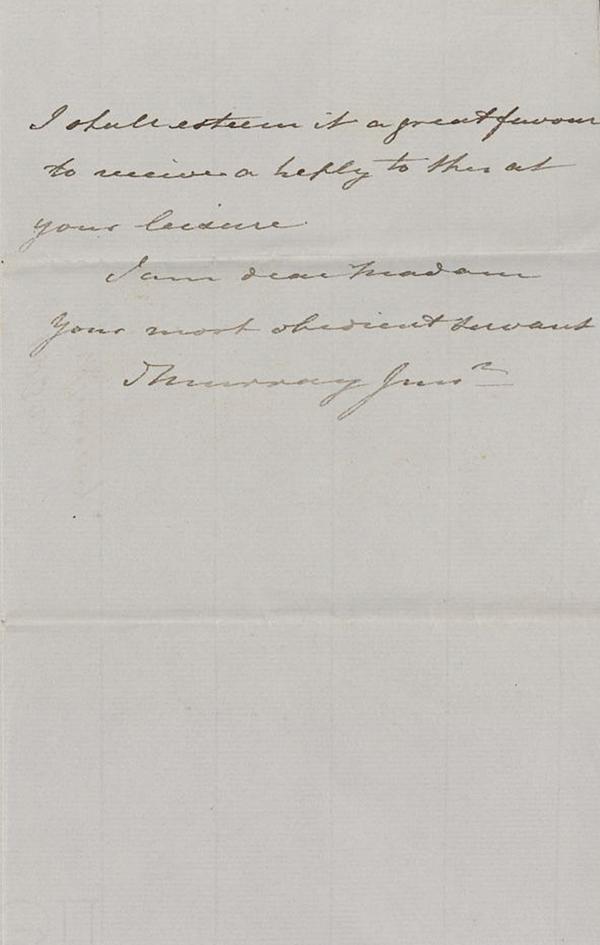 I shall esteem it a great favour
to receive a reply to this at
your leisure
I am dear Madam
Your most obedient servant
Murray Junr